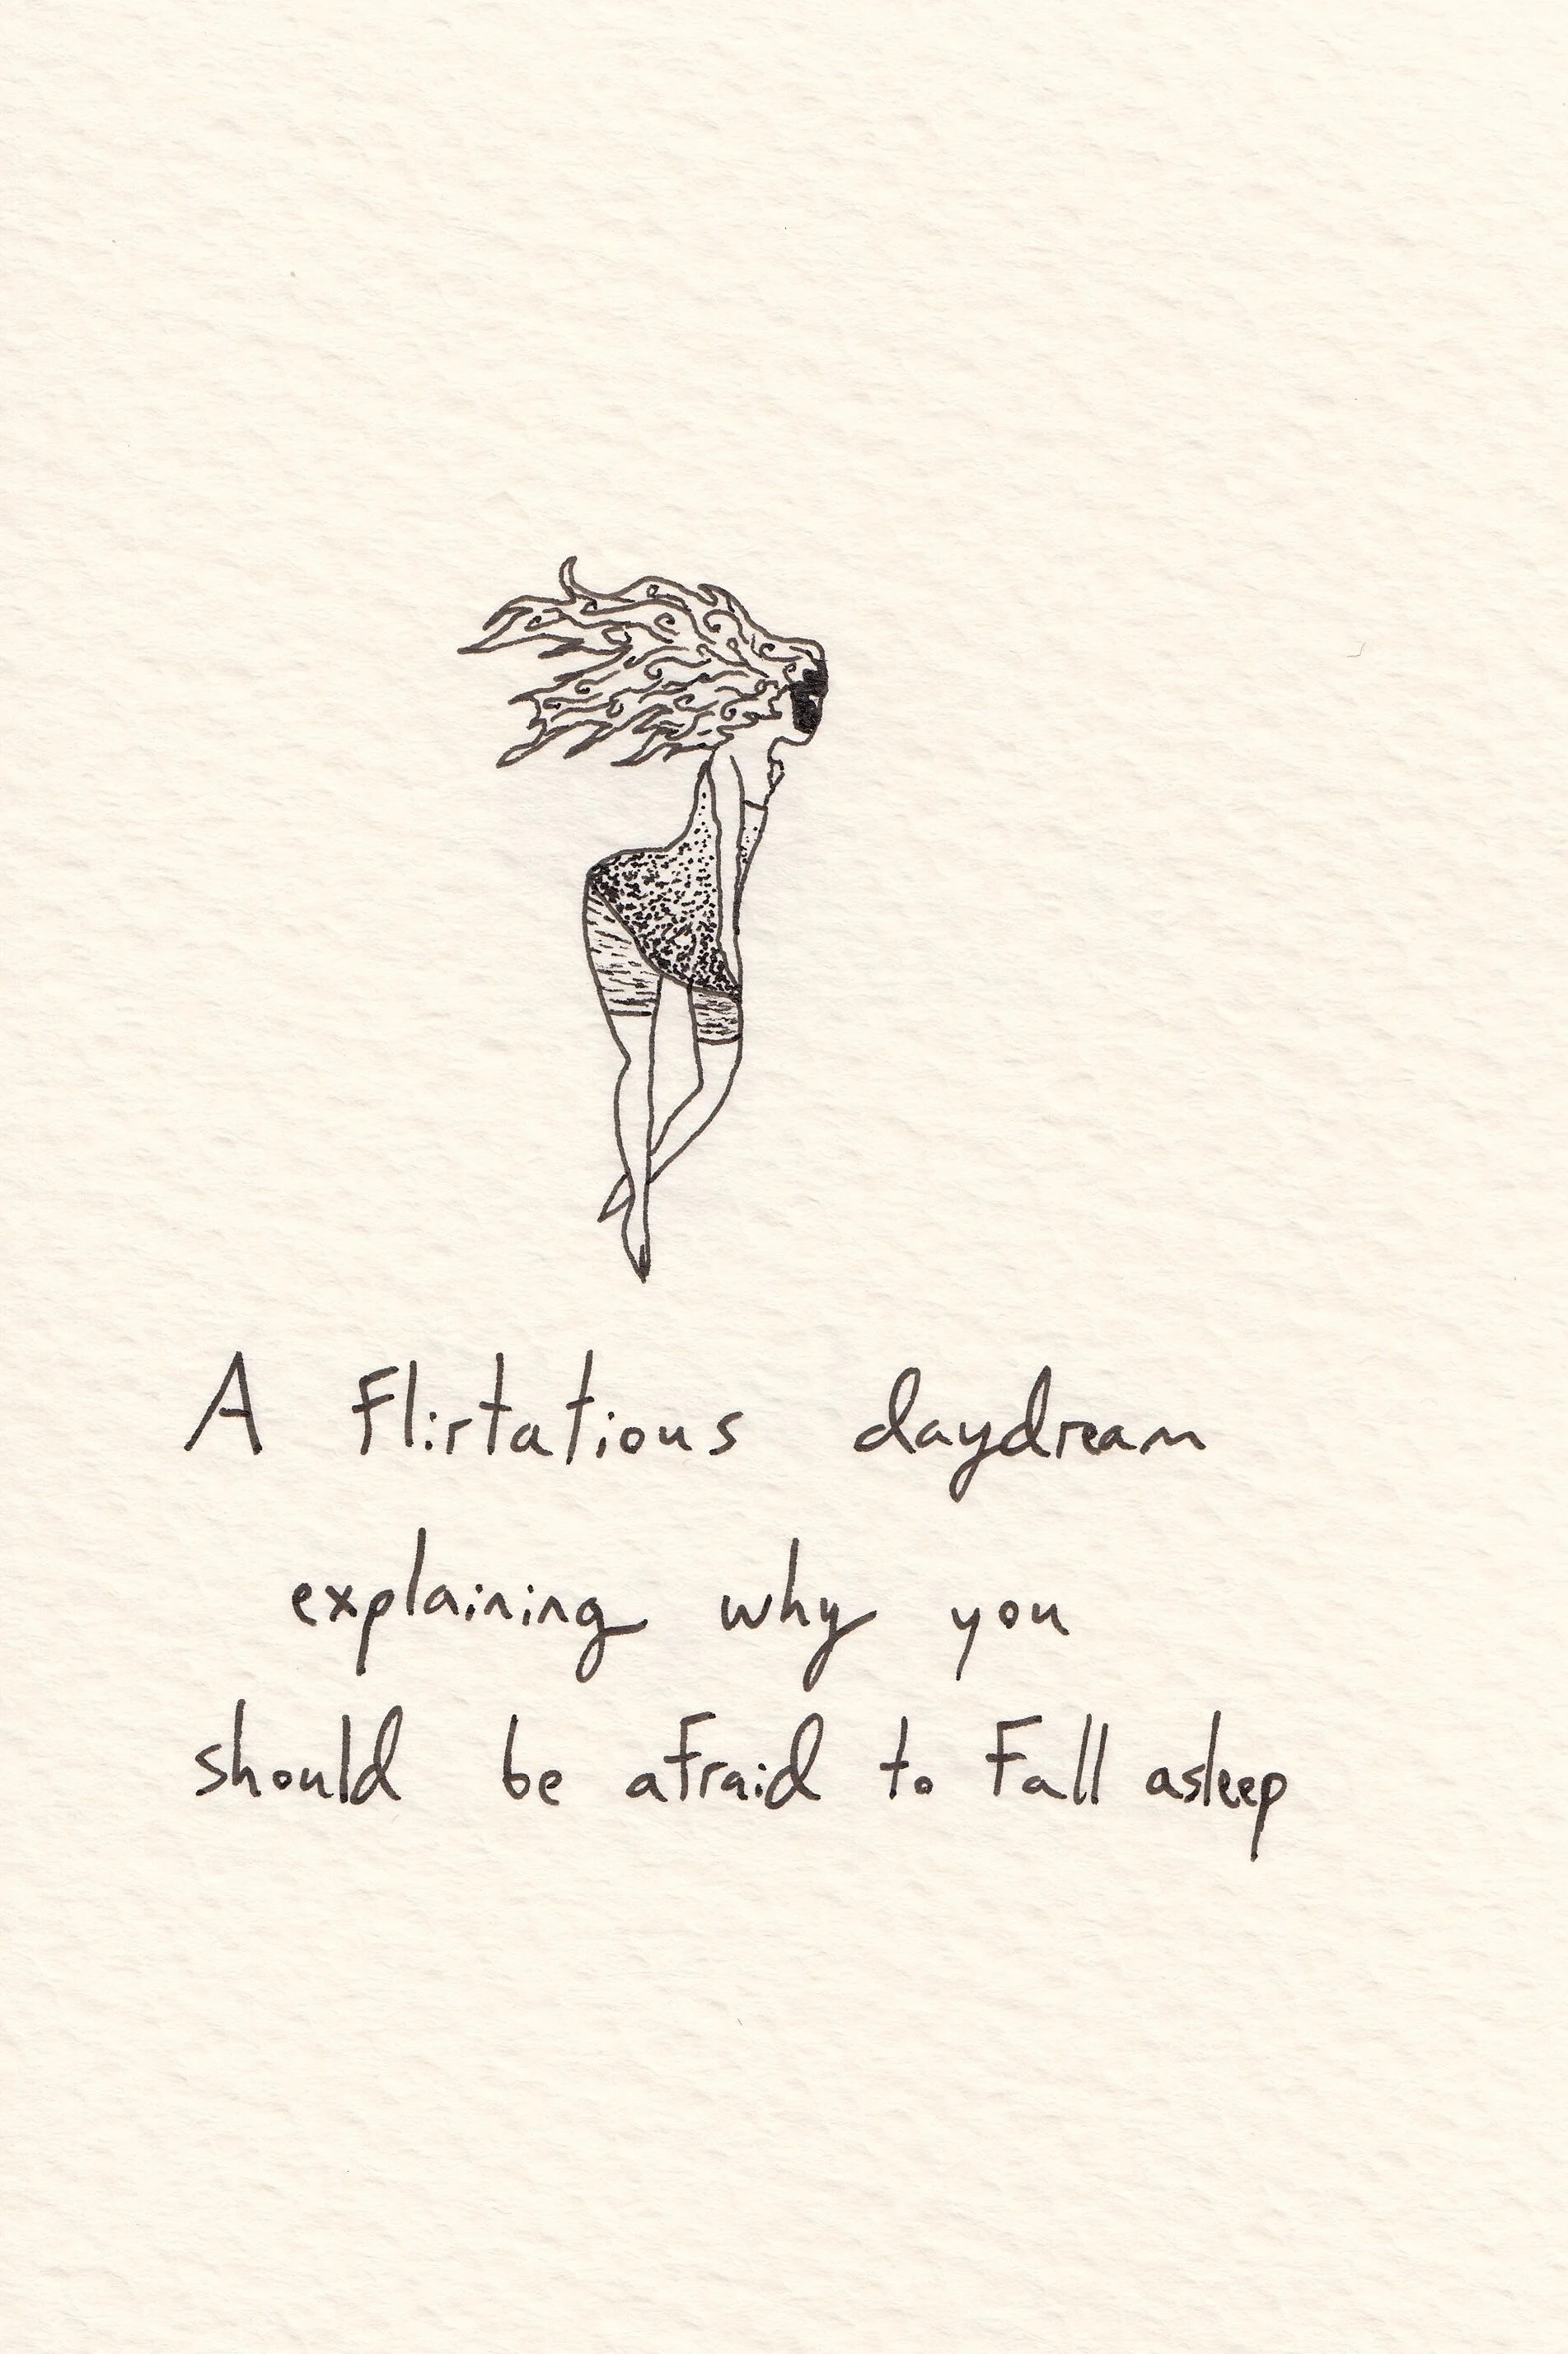 A flirtatious daydream
explaining why you
should be afraid to fall asleep